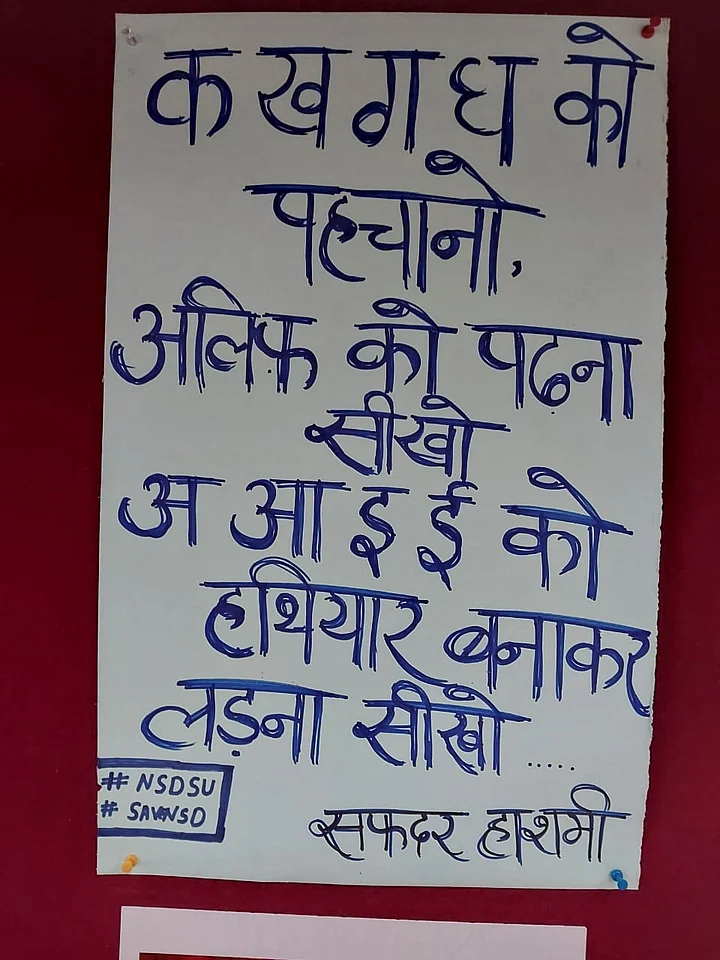 क ख ग घ को
पहचानो,
अलिफ़ को पढ़ना
सीखो
अ आ इ ई को
हथियार बनाकर
लड़ना सीखो .....
# NSDSU
# SAVENSD
सफदर हाशमी